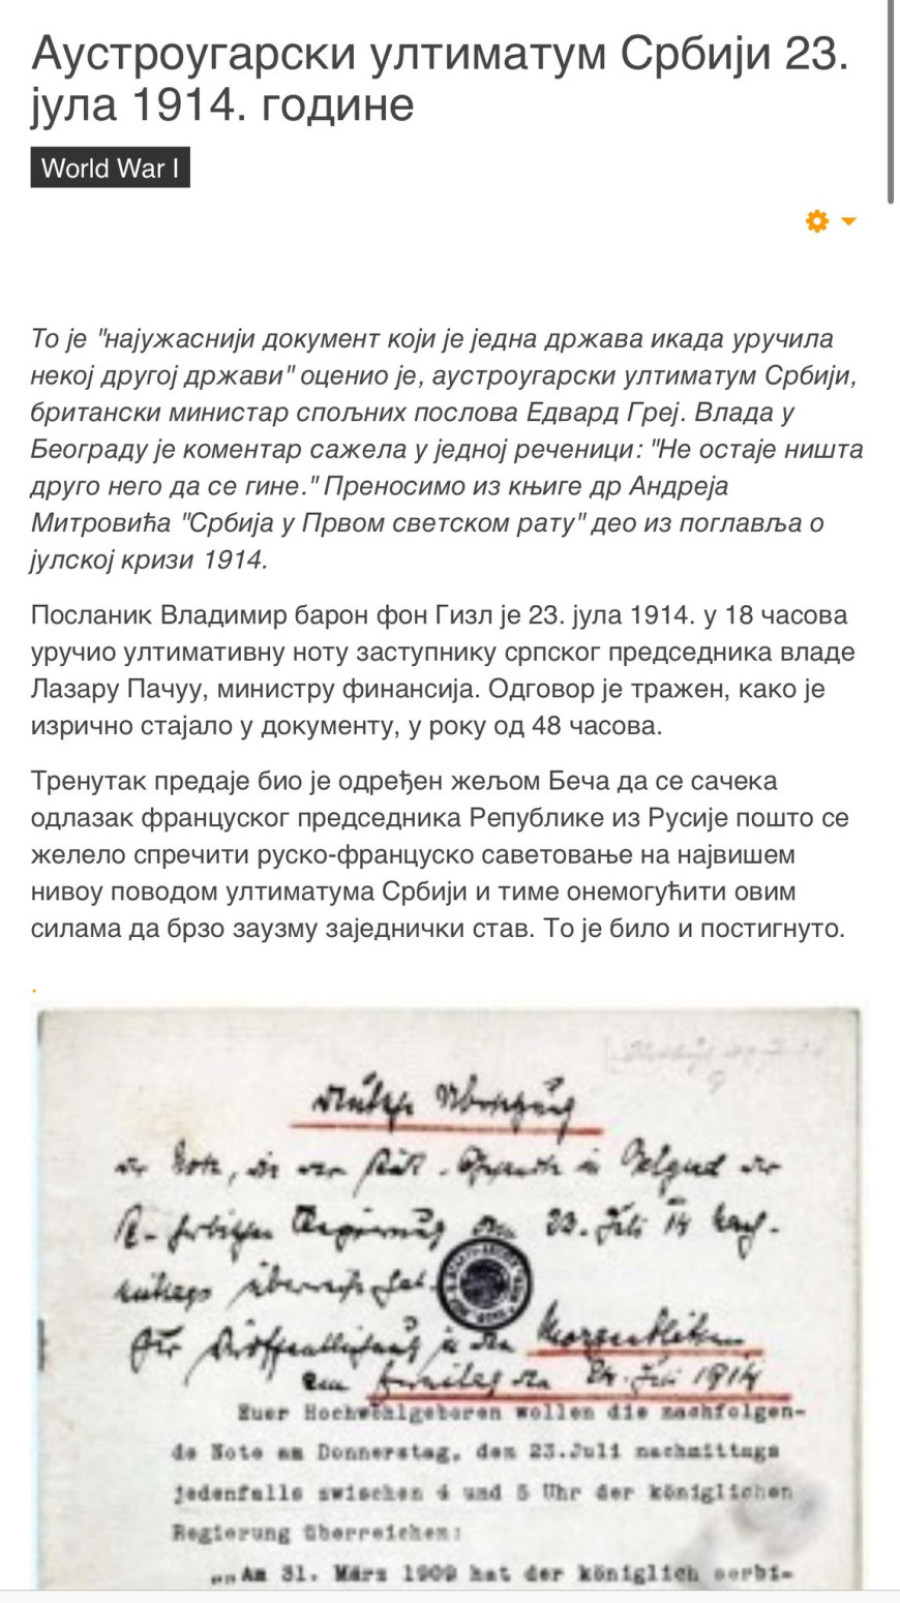 Аустроугарски ултиматум Србији 23.
јула 1914. године
World War I
То је "најужаснији документ који је једна држава икада уручила
некој другој држави" оценио је, аустроугарски ултиматум Србији,
британски министар спољних послова Едвард Греј. Влада у
Београду је коментар сажела у једној реченици: "Не остаје ништа
друго него да се гине." Преносимо из књиге др Андреја
Митровића "Србија у Првом светском рату" део из поглавља о
јулској кризи 1914.
Посланик Владимир барон фон Гизл је 23. јула 1914. у 18 часова
уручио ултимативну ноту заступнику српског председника владе
Лазару Пачуу, министру финансија. Одговор је тражен, како је
изрично стајало у документу, у року од 48 часова.
Тренутак предаје био је одређен жељом Беча да се сачека
одлазак француског председника Републике из Русије пошто се
желело спречити руско-француско саветовање на највишем
нивоу поводом ултиматума Србији и тиме онемогућити овим
силама да брзо заузму заједнички став. То је било и постигнуто.
der Note, die
23. Juli 14
überreicht hat.
Für Veröffentlichung in den Morgenblättern
am Freitag den 24. Juli 1914
Euer Hochwohlgeboren wollen die nachfolgen-
de Note am Donnerstag, den 23.Juli nachmittags
jedenfalls zwischen 4 und 5 Uhr der königlichen
Regierung überreichen:
„„Am 31. März 1909 hat der königlich serbi-